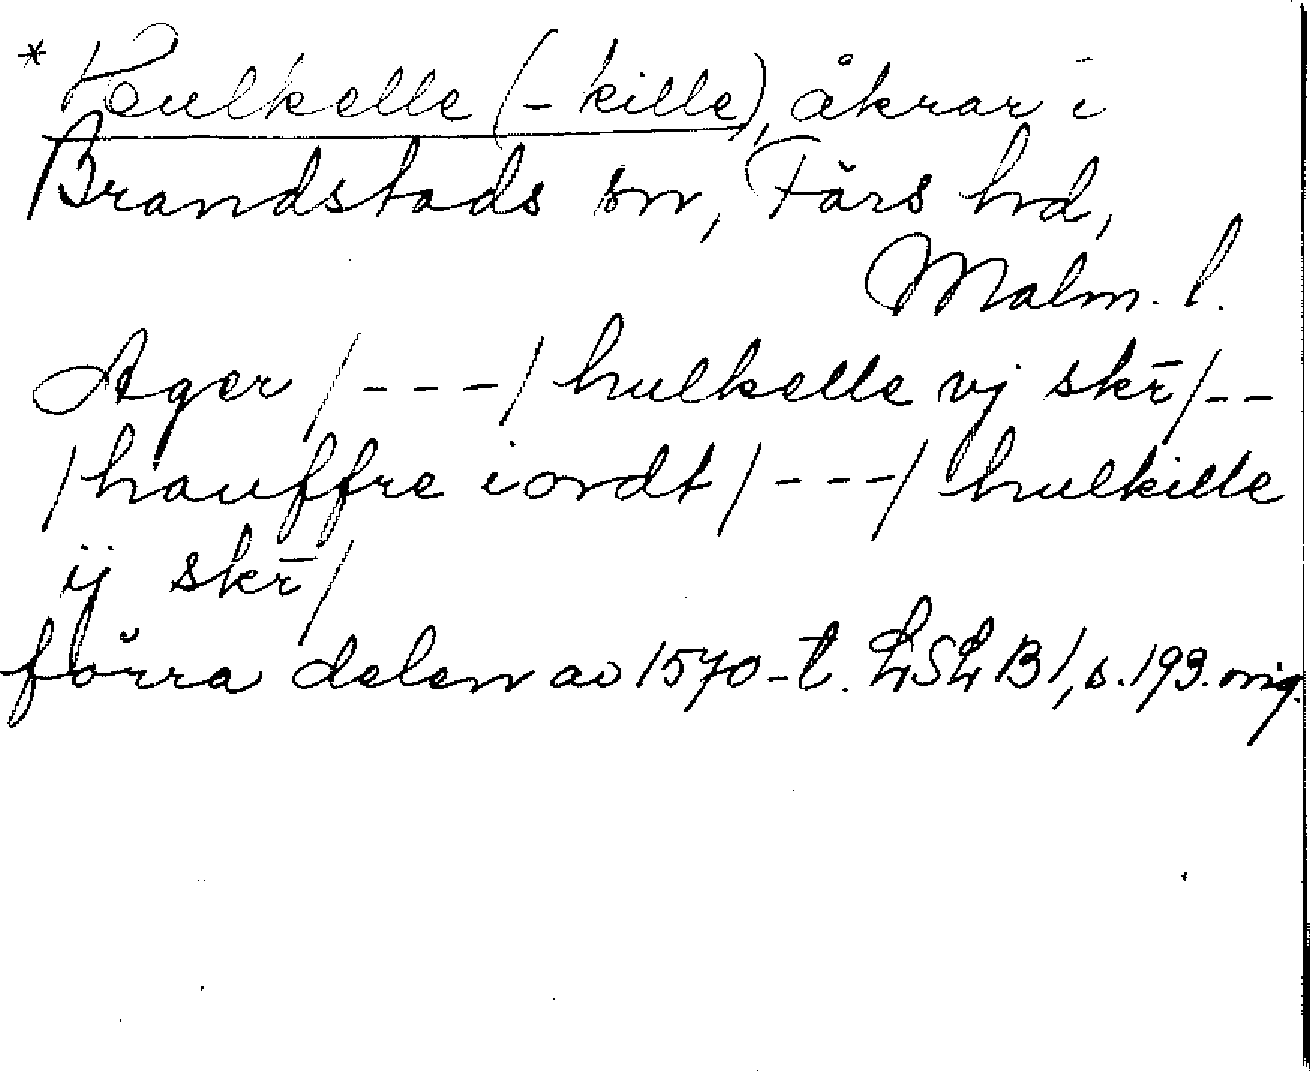 * Hulkelle (-kille), åkrar i
Brandstads sn, Färs hd,
Malm. l.
Ager /---/ hulkelle vj skr̄ /--
/ hauffre iordt /---/ hulkille
ij skr̄ /
förra delen av 1570-t. LSL B1, s. 193. orig.